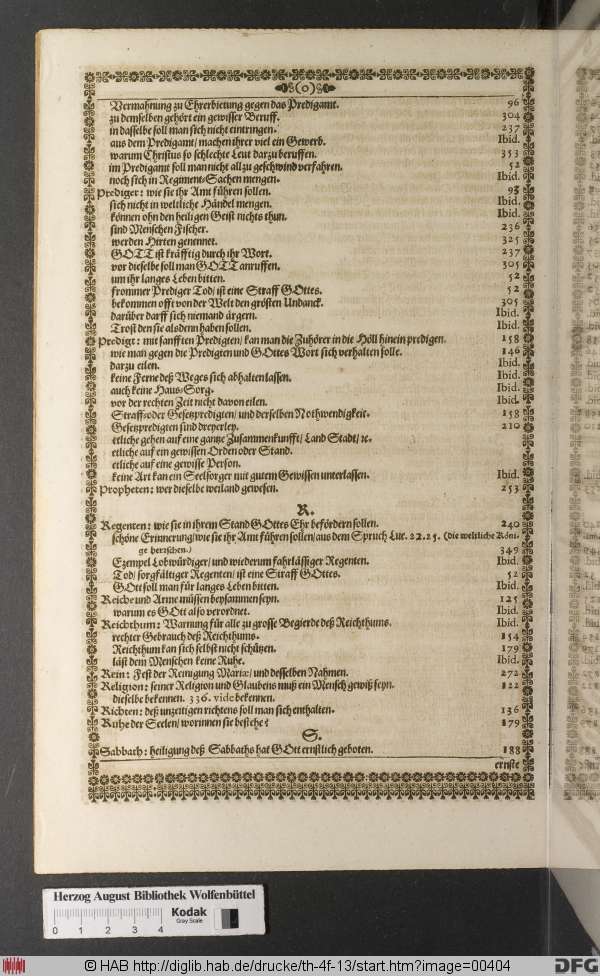 (o)
Vermahnung zu Ehrerbietung gegen das Predigamt. 96
zu demselben gehört ein gewisser Beruff. 304
in dasselbe soll man sich nicht eintringen. 237
aus dem Predigamt/ machen ihrer viel ein Gewerb. Ibid.
warum Christus so schlechte Leut darzu beruffen. 353
im Predigamt soll man nicht allzu geschwind verfahren. 52
noch sich in Regiment-Sachen mengen. Ibid.
Prediger: wie sie ihr Amt führen sollen. 93
sich nicht in weltliche Händel mengen. Ibid.
können ohn den heiligen Geist nichts thun. Ibid.
sind Menschen Fischer. 236
werden Hirten genennet. 325
GOTT ist kräfftig durch ihr Wort. 237
vor dieselbe soll man GOTT anruffen. 305
um ihr langes Leben bitten. 52
frommer Prediger Tod/ ist eine Straff GOttes. 52
bekommen offt von der Welt den grösten Undanck. 305
darüber darff sich niemand ärgern. Ibid.
Trost den sie alsdenn haben sollen. Ibid.
Predigt: mit sanfften Predigten/ kan man die Zuhörer in die Höll hinein predigen. 158
wie man gegen die Predigten und GOttes Wort sich verhalten solle. 146
darzu eilen. Ibid.
keine Ferne deß Weges sich abhalten lassen. Ibid.
auch keine Haus-Sorg. Ibid.
vor der rechten Zeit nicht davon eilen. Ibid.
Straff- oder Gesetzpredigten/ und derselben Nothwendigkeit. 158
Gesetzpredigten sind dreyerley. 210
etliche gehen auf eine gantze Zusammenkunfft/ Land Stadt/ ꝛc.
etliche auf ein gewissen Orden oder Stand.
etliche auf eine gewisse Person.
keine Art kan ein Seelsorger mit gutem Gewissen unterlassen. Ibid.
Propheten: wer dieselbe weiland gewesen. 253
R.
Regenten: wie sie in ihrem Stand GOttes Ehr befördern sollen. 240
schöne Erinnerung/ wie sie ihr Amt führen sollen/ aus dem Spruch Luc. 22.25. (Die weltliche Köni-
ge herrschen.) 349
Exempel Lobwürdiger/ und wiederum fahrlässiger Regenten. Ibid.
Tod/ sorgfältiger Regenten/ ist eine Straff GOttes. 52
GOtt soll man für langes Leben bitten. Ibid.
Reiche und Arme müssen beysammen seyn. 125
warum es GOtt also verordnet. Ibid.
Reichthum: Warnung für alle zu grosse Begierde deß Reichthums. Ibid.
rechter Gebrauch deß Reichthums. 154
Reichthum kan sich selbst nicht schützen. 179
läst dem Menschen keine Ruhe. Ibid.
Rein: Fest der Reinigung Mariæ/ und desselben Nahmen. 272
Religion: seiner Religion und Glaubens muß ein Mensch gewiß seyn. 122
dieselbe bekennen. 336. vide bekennen.
Richten: deß unzeitigen richtens soll man sich enthalten. 136
Ruhe der Seelen/ worinnen sie bestehe? 179
S.
Sabbath: heiligung deß Sabbaths hat GOtt ernstlich geboten. 188
ernste
Herzog August Bibliothek Wolfenbüttel
0 1 2 3 4
Kodak
Gray Scale
© HAB http://diglib.hab.de/drucke/th-4f-13/start.htm?image=00404
DFG